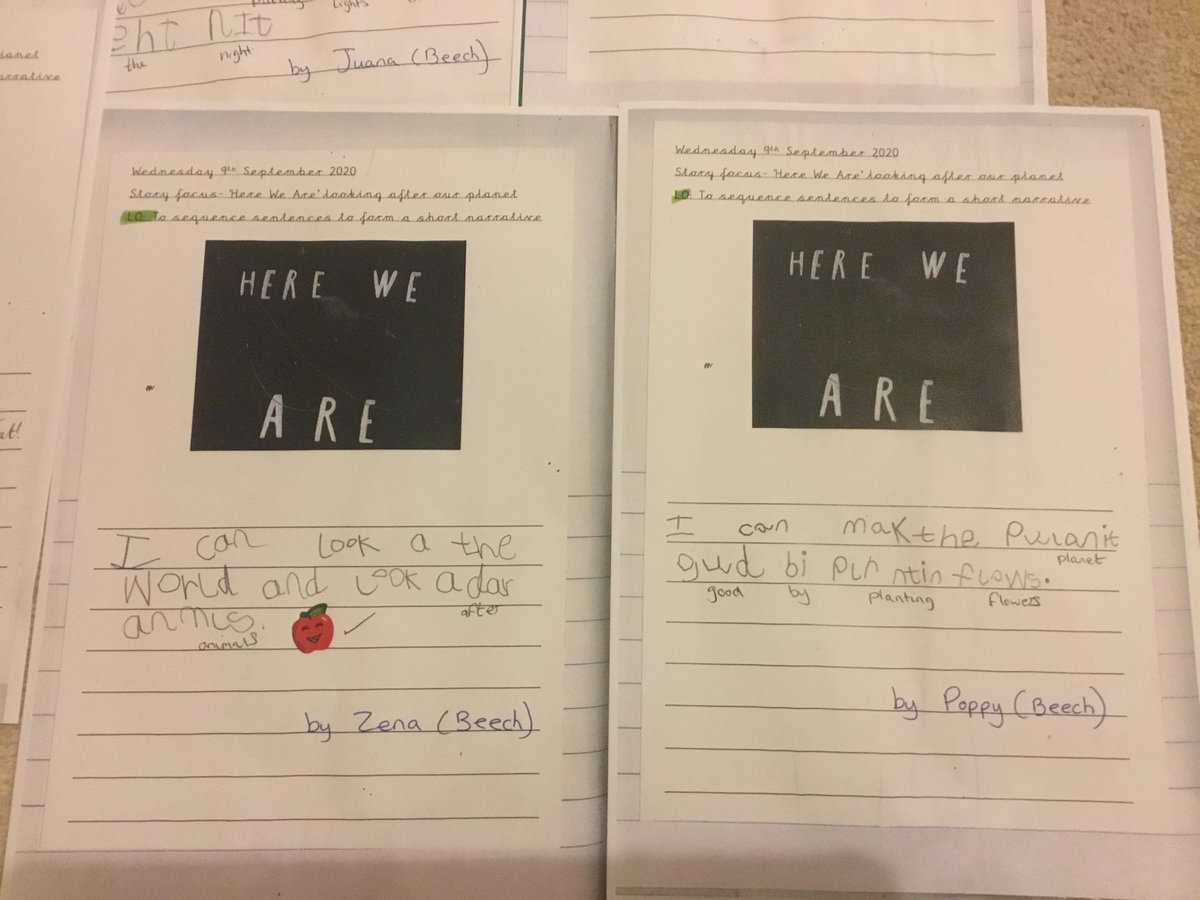 lights
the night
by Juana (Beech)
Wednesday 9th September 2020
Story focus- 'Here We Are' looking after our planet
LO: To sequence sentences to form a short narrative
HERE WE
ARE
I can look a the
World and look adar
after
anmls.
animals
by Zena (Beech)
Wednesday 9th September 2020
Story focus- 'Here We Are' looking after our planet
LO: To sequence sentences to form a short narrative
HERE WE
ARE
I can mak the Pwranit
planet
gud bi plantin flows.
good by planting flowers
by Poppy (Beech)